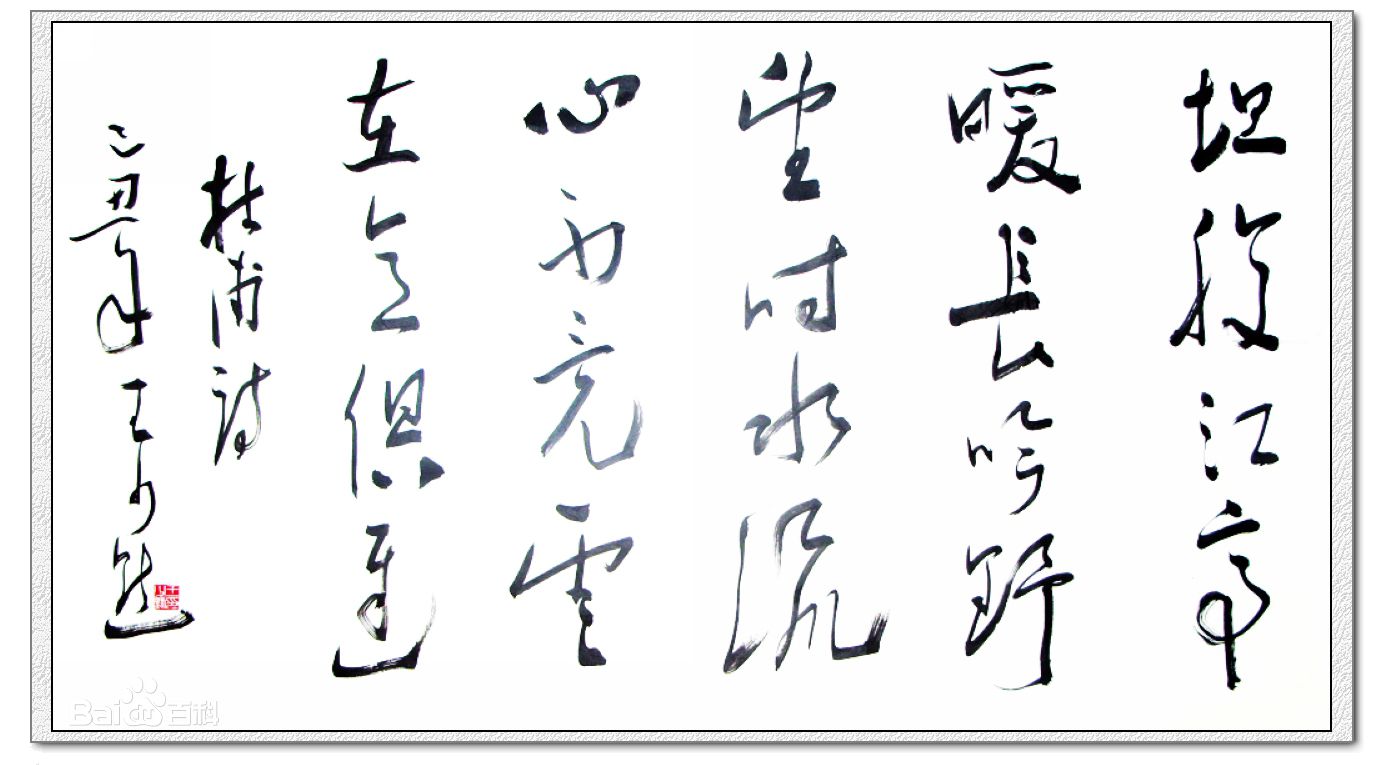 坦腹江亭
暖長吟野
望时水流
心不竞雲
在意俱遲
杜甫詩
己丑年王少
Bai百科